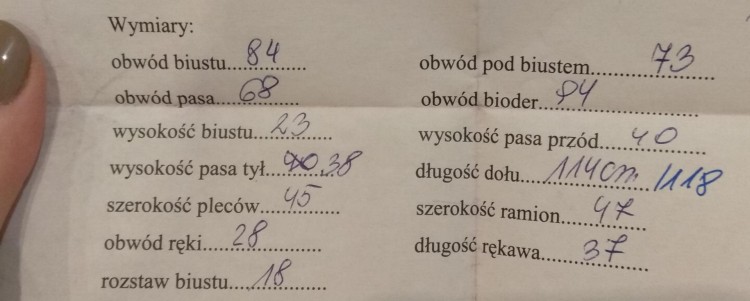 Wymiary:
obwód biustu....84........
obwód pod biustem......73......
obwód pasa....68........
obwód bioder...94..........
wysokość biustu...23......
wysokość pasa przód....40.....
wysokość pasa tył....38
długość dołu....114cm. /118
szerokość pleców...45......
szerokość ramion.....47......
obwód ręki.....28..........
długość rękawa.......37......
rozstaw biustu....18........